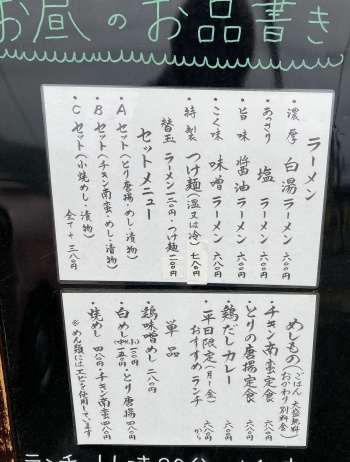 お昼のお品書き
ラーメン
・濃厚 白湯ラーメン 六八〇
・あさり 塩ラーメン 六八〇
・旨味 醤油ラーメン 六八〇
・こく味 味噌ラーメン 六八〇
・特製 つけ麺(温又は冷) 七八〇
替玉 ラーメン 一二〇円・つけ麺 二〇〇円
セットメニュー
・Aセット(とり唐揚・めし・漬物)
・Bセット(チキン南蛮・めし・漬物)
・Cセット(小焼めし・漬物)
全て+三八〇円
めしもの(ごはん 大盛無料 おかわり別料金)
・チキン南蛮定食 六八〇
・とりの唐揚定食 六八〇
・鶏だしカレー 六八〇
・平日限定(月~金)
おすすめランチ 六八〇から
単品
・鶏味噌めし 二八〇
・白めし
一五〇
・とり唐揚 四八〇
・焼めし 四八〇
・チキン南蛮 四八〇
※めん類にはエビを使用しています